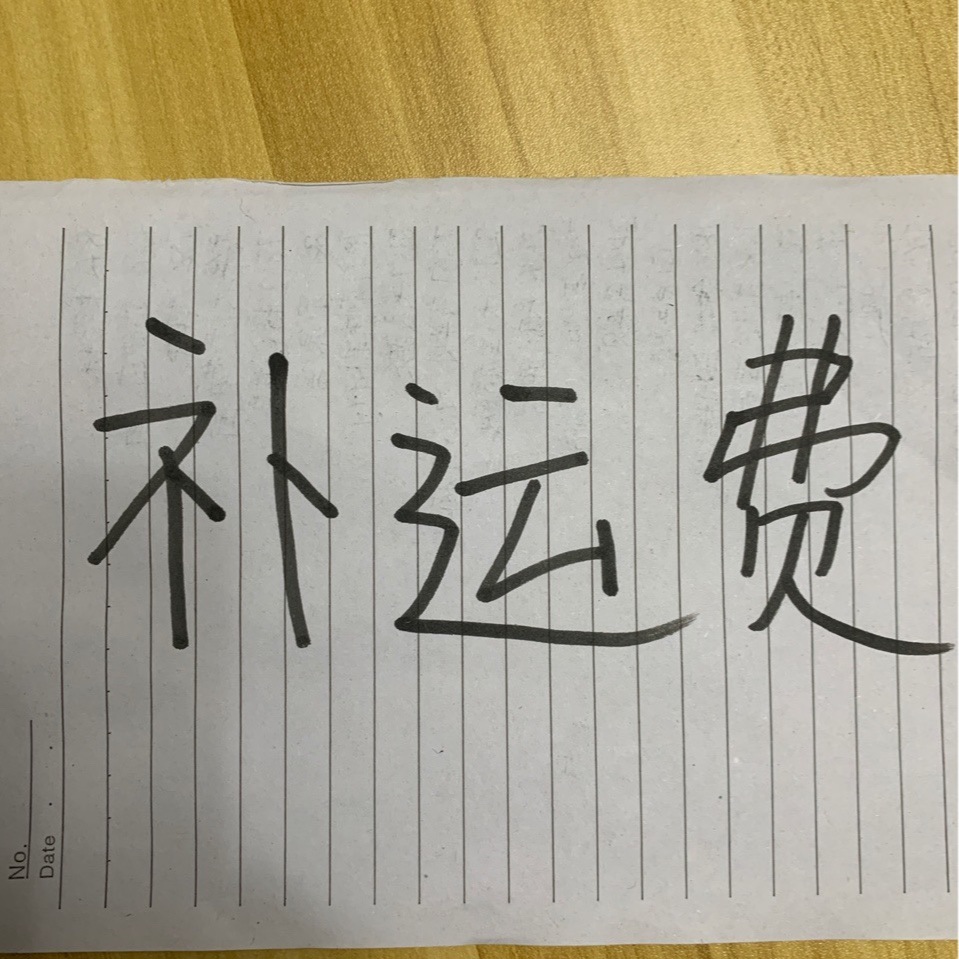 补运费
No.
Date